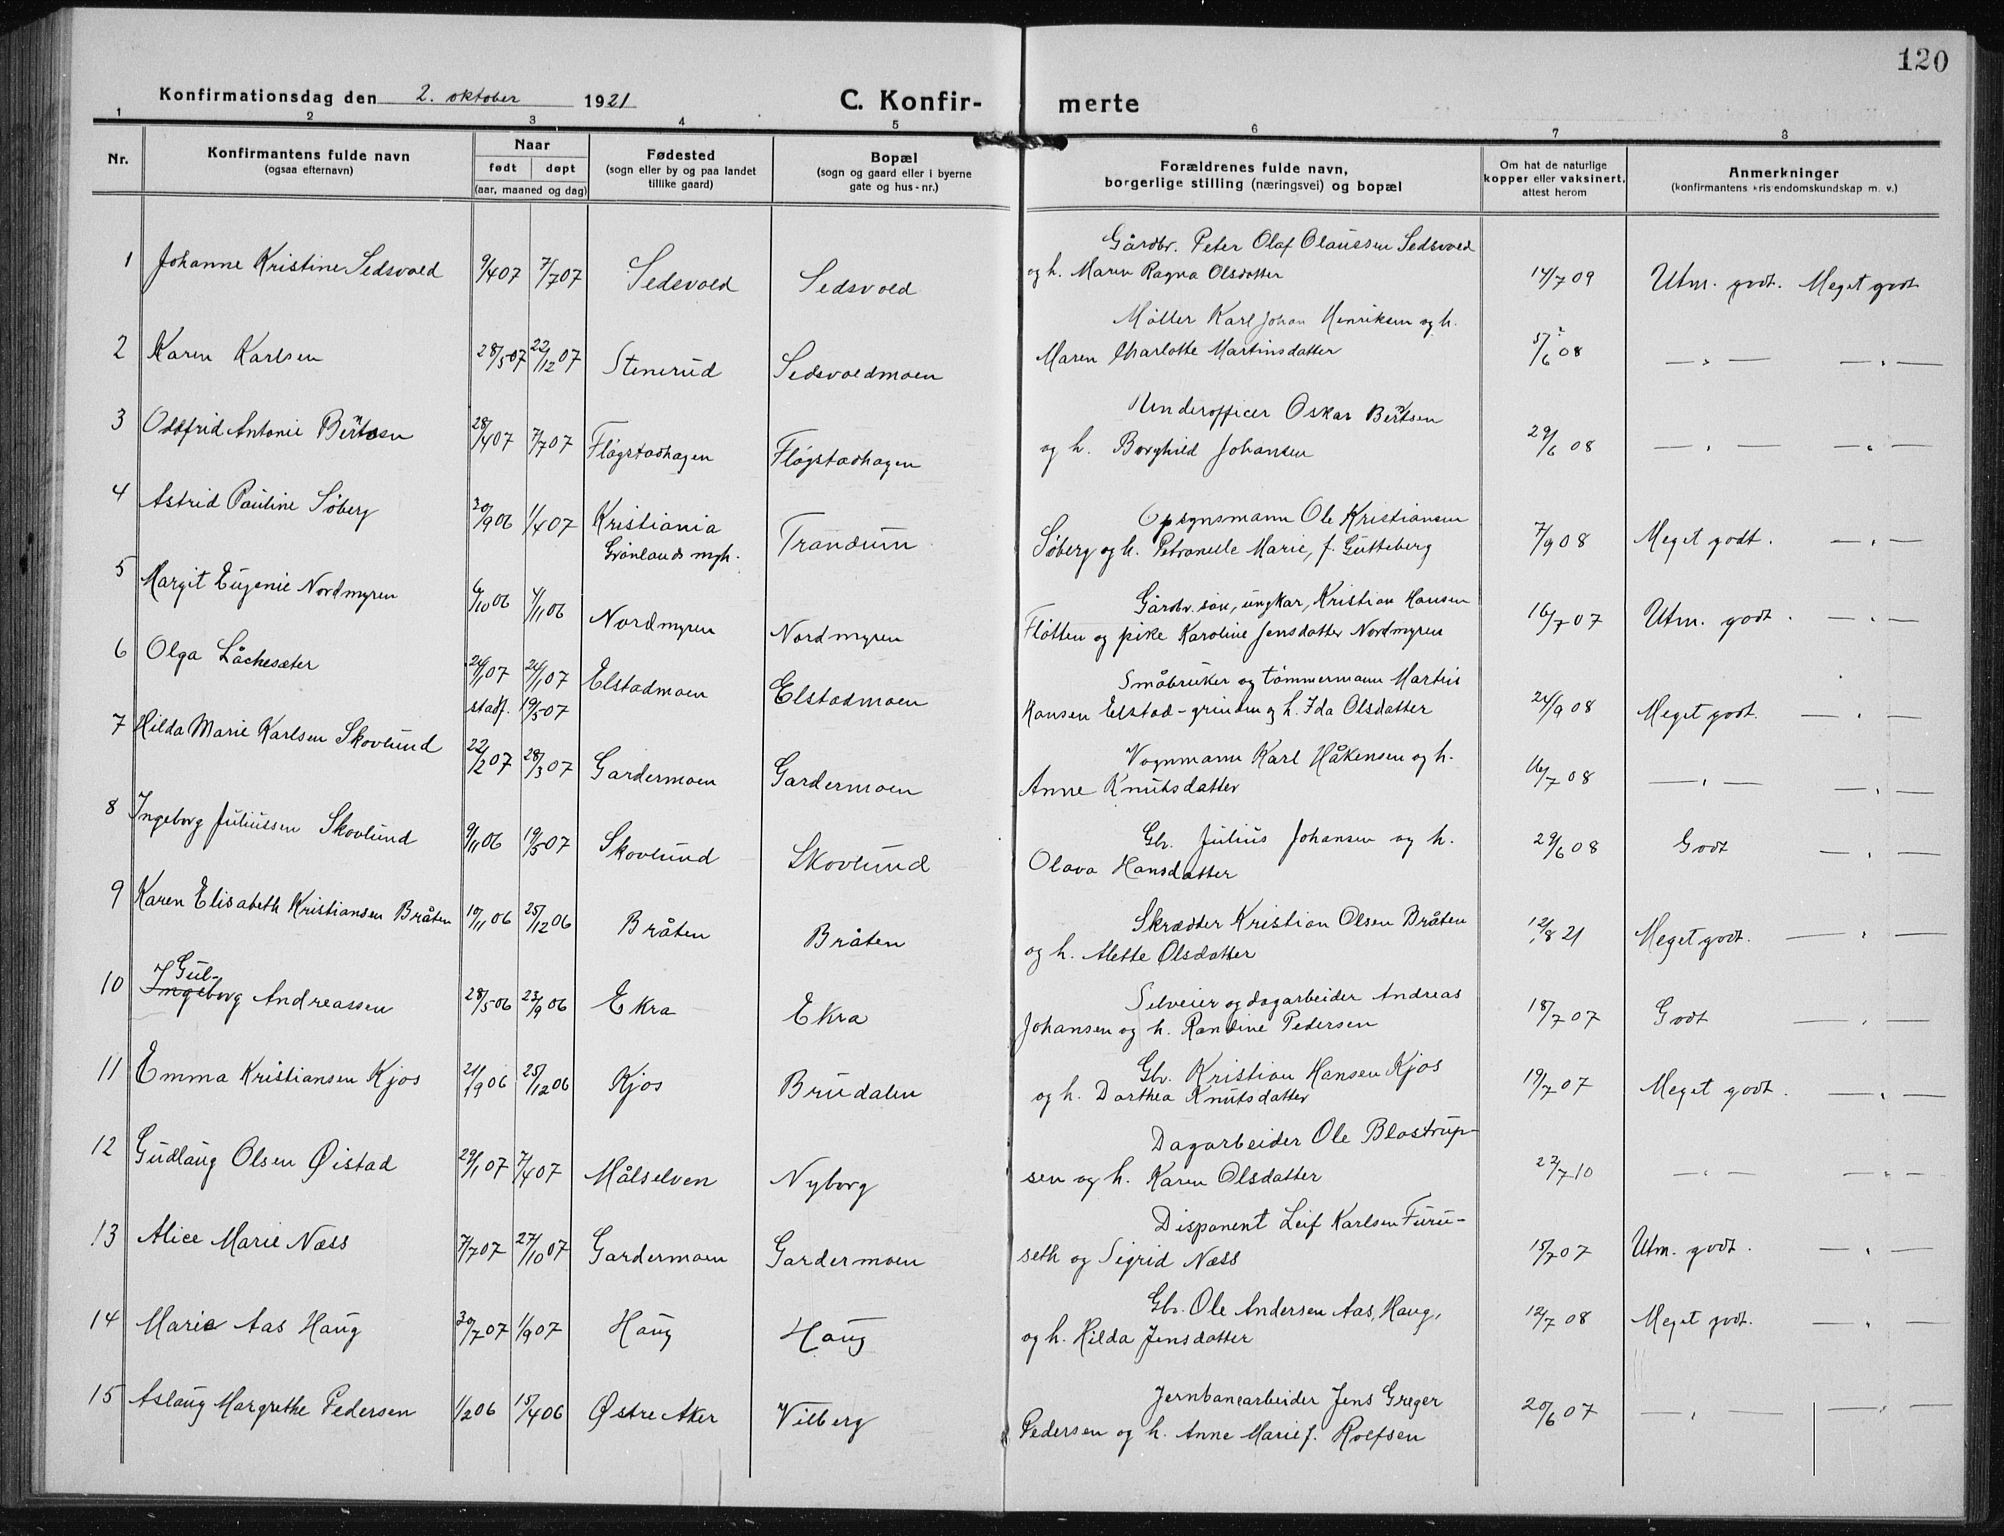 120
Konfirmationsdag den 2. oktober 1921 C. Konfir- merte
1 2 3 4 5 6 7 8
Nr. Konfirmantens fulde navn (ogsaa efternavn) Naar født døpt (aar, maaned og dag) Fødested (sogn eller by og paa landet tillike gaard) Bopæl (sogn og gaard eller i byerne gate og hus-nr.) Forældrenes fulde navn, borgerlige stilling (næringsvei) og bopæl Om hat de naturlige kopper eller vaksinert, attest herom Anmerkninger (konfirmantens kristendomskundskap m. v.)
1 Johanne Kristine Sedsvold 9/4 07 7/7 07 Sedsvold Sedsvold Gårdbr. Peter Olaf Olaussen Sedsvold
og h. Maren Ragna Olsdatter 14/7 09 Utm. godt. Meget godt
2 Karen Karlsen 28/5 07 22/12 07 Stenerud Sedsvoldmoen Møller Karl Johan Henriksen og h.
Maren Charlotte Martinsdatter 5/6 08 — " — — " —
3 Oddfrid Antonie Berntsen 28/4 07 7/7 07 Fløgstadhagen Fløgstadhagen Underofficer Oskar Berntsen
og h. Borghild Johansen 29/6 08 — " — — " —
4 Astrid Pauline Søberg 30/9 06 1/4 07 Kristiania Grønlands mgh. Trandum Opsynsmann Ole Kristiansen
Søberg og h. Petronelle Marie, f. Gutteberg 7/9 08 Meget godt. — " —
5 Margit Eugenie Nordmyren 6/10 06 4/11 06 Nordmyren Nordmyren Gårdbr. søn, ungkar, Kristian Hansen
Fløtten og pike Karoline Jensdatter Nordmyren 16/7 07 Utm. godt. — " —
6 Olga Låchesæter 24/1 07 24/1 07 Elstadmoen Elstadmoen Småbruker og tømmermann Martin
stadf. 19/5 07 Hansen Elstad-grinden og h. Ida Olsdatter 24/9 08 Meget godt. — " —
7 Hilda Marie Karlsen Skovlund 22/2 07 28/3 07 Gardermoen Gardermoen Vognmann Karl Håkensen og h.
Anne Knutsdatter 16/7 08 — " — — " —
8 Ingeborg Juliussen Skovlund 9/11 06 19/5 07 Skovlund Skovlund Gbr. Julius Johansen og h.
Olava Hansdatter 29/6 08 Godt — " —
9 Karen Elisabeth Kristiansen Bråten 10/11 06 25/12 06 Bråten Bråten Skrædder Kristian Olsen Bråten
og h. Alette Olsdatter 12/8 21 Meget godt. — " —
Gul-
10 Ingeborg Andreassen 28/5 06 23/9 06 Ekra Ekra Selveier og dagarbeider Andreas
Johansen og h. Randine Pedersen 18/7 07 Godt — " —
11 Emma Kristiansen Kjos 21/9 06 25/12 06 Kjos Brudalen Gbr. Kristian Hansen Kjos
og h. Dorthea Knutsdatter 19/7 07 Meget godt. — " —
12 Gudlaug Olsen Øistad 29/1 07 7/4 07 Målselven Nyborg Dagarbeider Ole Blostrup-
sen og h. Karen Olsdatter 27/7 10 — " — — " —
13 Alice Marie Næss 7/7 07 27/10 07 Gardermoen Gardermoen Disponent Leif Karlsen Furu-
seth og Sigrid Næss 15/7 07 Utm. godt. — " —
14 Marie Aas Haug 30/7 07 1/9 07 Haug Haug Gbr. Ole Andersen Aas, Haug,
og h. Hilda Jensdatter 12/7 08 Meget godt. — " —
15 Aslaug Margrethe Pedersen 1/2 06 15/4 06 Østre Aker Vilberg Jernbanearbeider Jens Greger
Pedersen og h. Anne Marie f. Rolfsen 20/6 07 — " — — " —